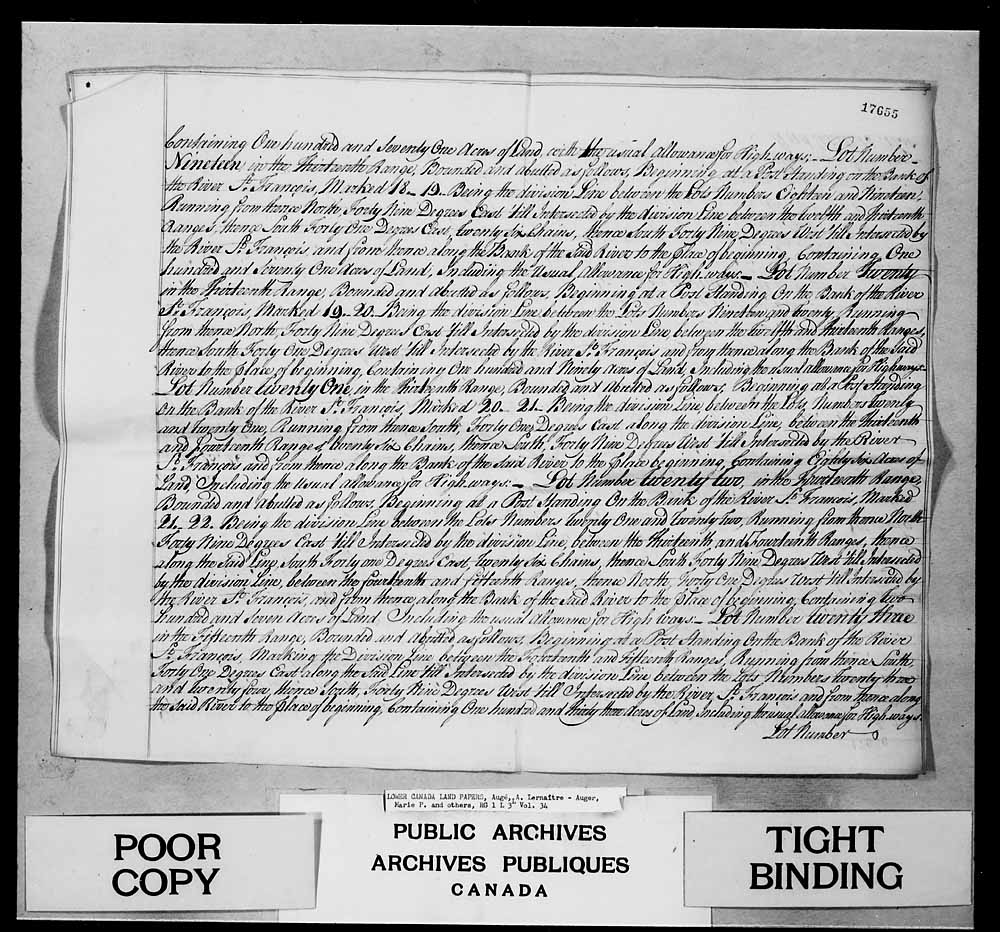 17655
Containing One hundred and Seventy One Acres of Land, with the usual allowance for High ways; — Lot Number –
Nineteen in the Thirteenth Range, Bounded and abutted as follows, Beginning at a Post Standing on the Bank of
the River St. Francois, Marked 18 – 19 – Being the division Line between the Lots Numbers Eighteen and Nineteen,
Running from thence North, Forty Nine Degrees East till Intersected by the division Line between the twelfth and thirteenth
Ranges, thence South Forty One Degrees East, twenty Six Chains, thence South Forty Nine Degrees West till Intersected by
the River St. Francois and from thence along the Bank of the Said River to the place of beginning, Containing One
hundred and Seventy One Acres of Land, Including the Usual allowance for High ways – Lot Number Twenty
in the Thirteenth Range, Bounded and abutted as follows, Beginning at a Post Standing On the Bank of the River
St. Francois, Marked 19 – 20. Being the division Line between the Lots Numbers Nineteen and twenty, Running
from thence North, Forty Nine Degrees East till Intersected by the division Line, between the twelfth and thirteenth Ranges,
thence South Forty One Degrees West till Intersected by the River St. Francois and from thence along the Bank of the Said
River to the place of beginning, Containing One hundred and Ninety Acres of Land, Including the usual allowance for Highways –
Lot Number twenty One, in the thirteenth Range, Bounded and abutted as follows, Beginning at a Post Standing
On the Bank of the River St. Francois, Marked 20 – 21 – Being the division Line, between the Lots, Numbers twenty
and twenty One, Running from thence South, Forty One Degrees East along the division Line, between the thirteenth
and fourteenth Ranges, twenty Six Chains, thence South, Forty Nine Degrees West till Intersected by the River
St. Francois and from thence along the Bank of the Said River to the place beginning, Containing Eighty Six Acres of
Land, Including the Usual allowance for High ways: – Lot Number twenty two, in the Fourteenth Range,
Bounded and Abutted as follows, Beginning at a Post Standing On the Bank of the River St. Francois, Marked
21 – 22. Being the division Line between the Lots Numbers twenty One and twenty two, Running from thence North
Forty Nine Degrees East till Intersected by the division Line, between the thirteenth and Fourteenth Ranges, thence
along the Said Line, South Forty one Degrees East, twenty Six Chains, thence South Forty Nine Degrees West till Intersected
by the division Line, between the fourteenth and fifteenth Ranges, thence North, Forty One Degrees West till Intersected by
the River St. Francois, and from thence, along the Bank of the Said River to the place of beginning, Containing two
hundred and Seven Acres of Land, Including the usual allowance for High ways – Lot Number twenty three
in the Fifteenth Range, Bounded and abutted as follows, Beginning at a Post Standing On the Bank of the River
St. Francois, Marking the Division Line between the Fourteenth and Fifteenth Ranges, Running from thence South
Forty One Degrees East along the Said Line till Intersected by the division Line between the Lots Numbers twenty three
and twenty four, thence South, Forty Nine Degrees West till Intersected by the River, St. Francois and from thence along
the Said River to the place of beginning, Containing One hundred and thirty three Acres of Land Including the usual allowance for High ways.
Lot Number
LOWER CANADA LAND PAPERS, Augé, A. Lemaître - Auger,
Marie P. and others, RG 1 L 3L Vol. 34
POOR
COPY
PUBLIC ARCHIVES
ARCHIVES PUBLIQUES
CANADA
TIGHT
BINDING